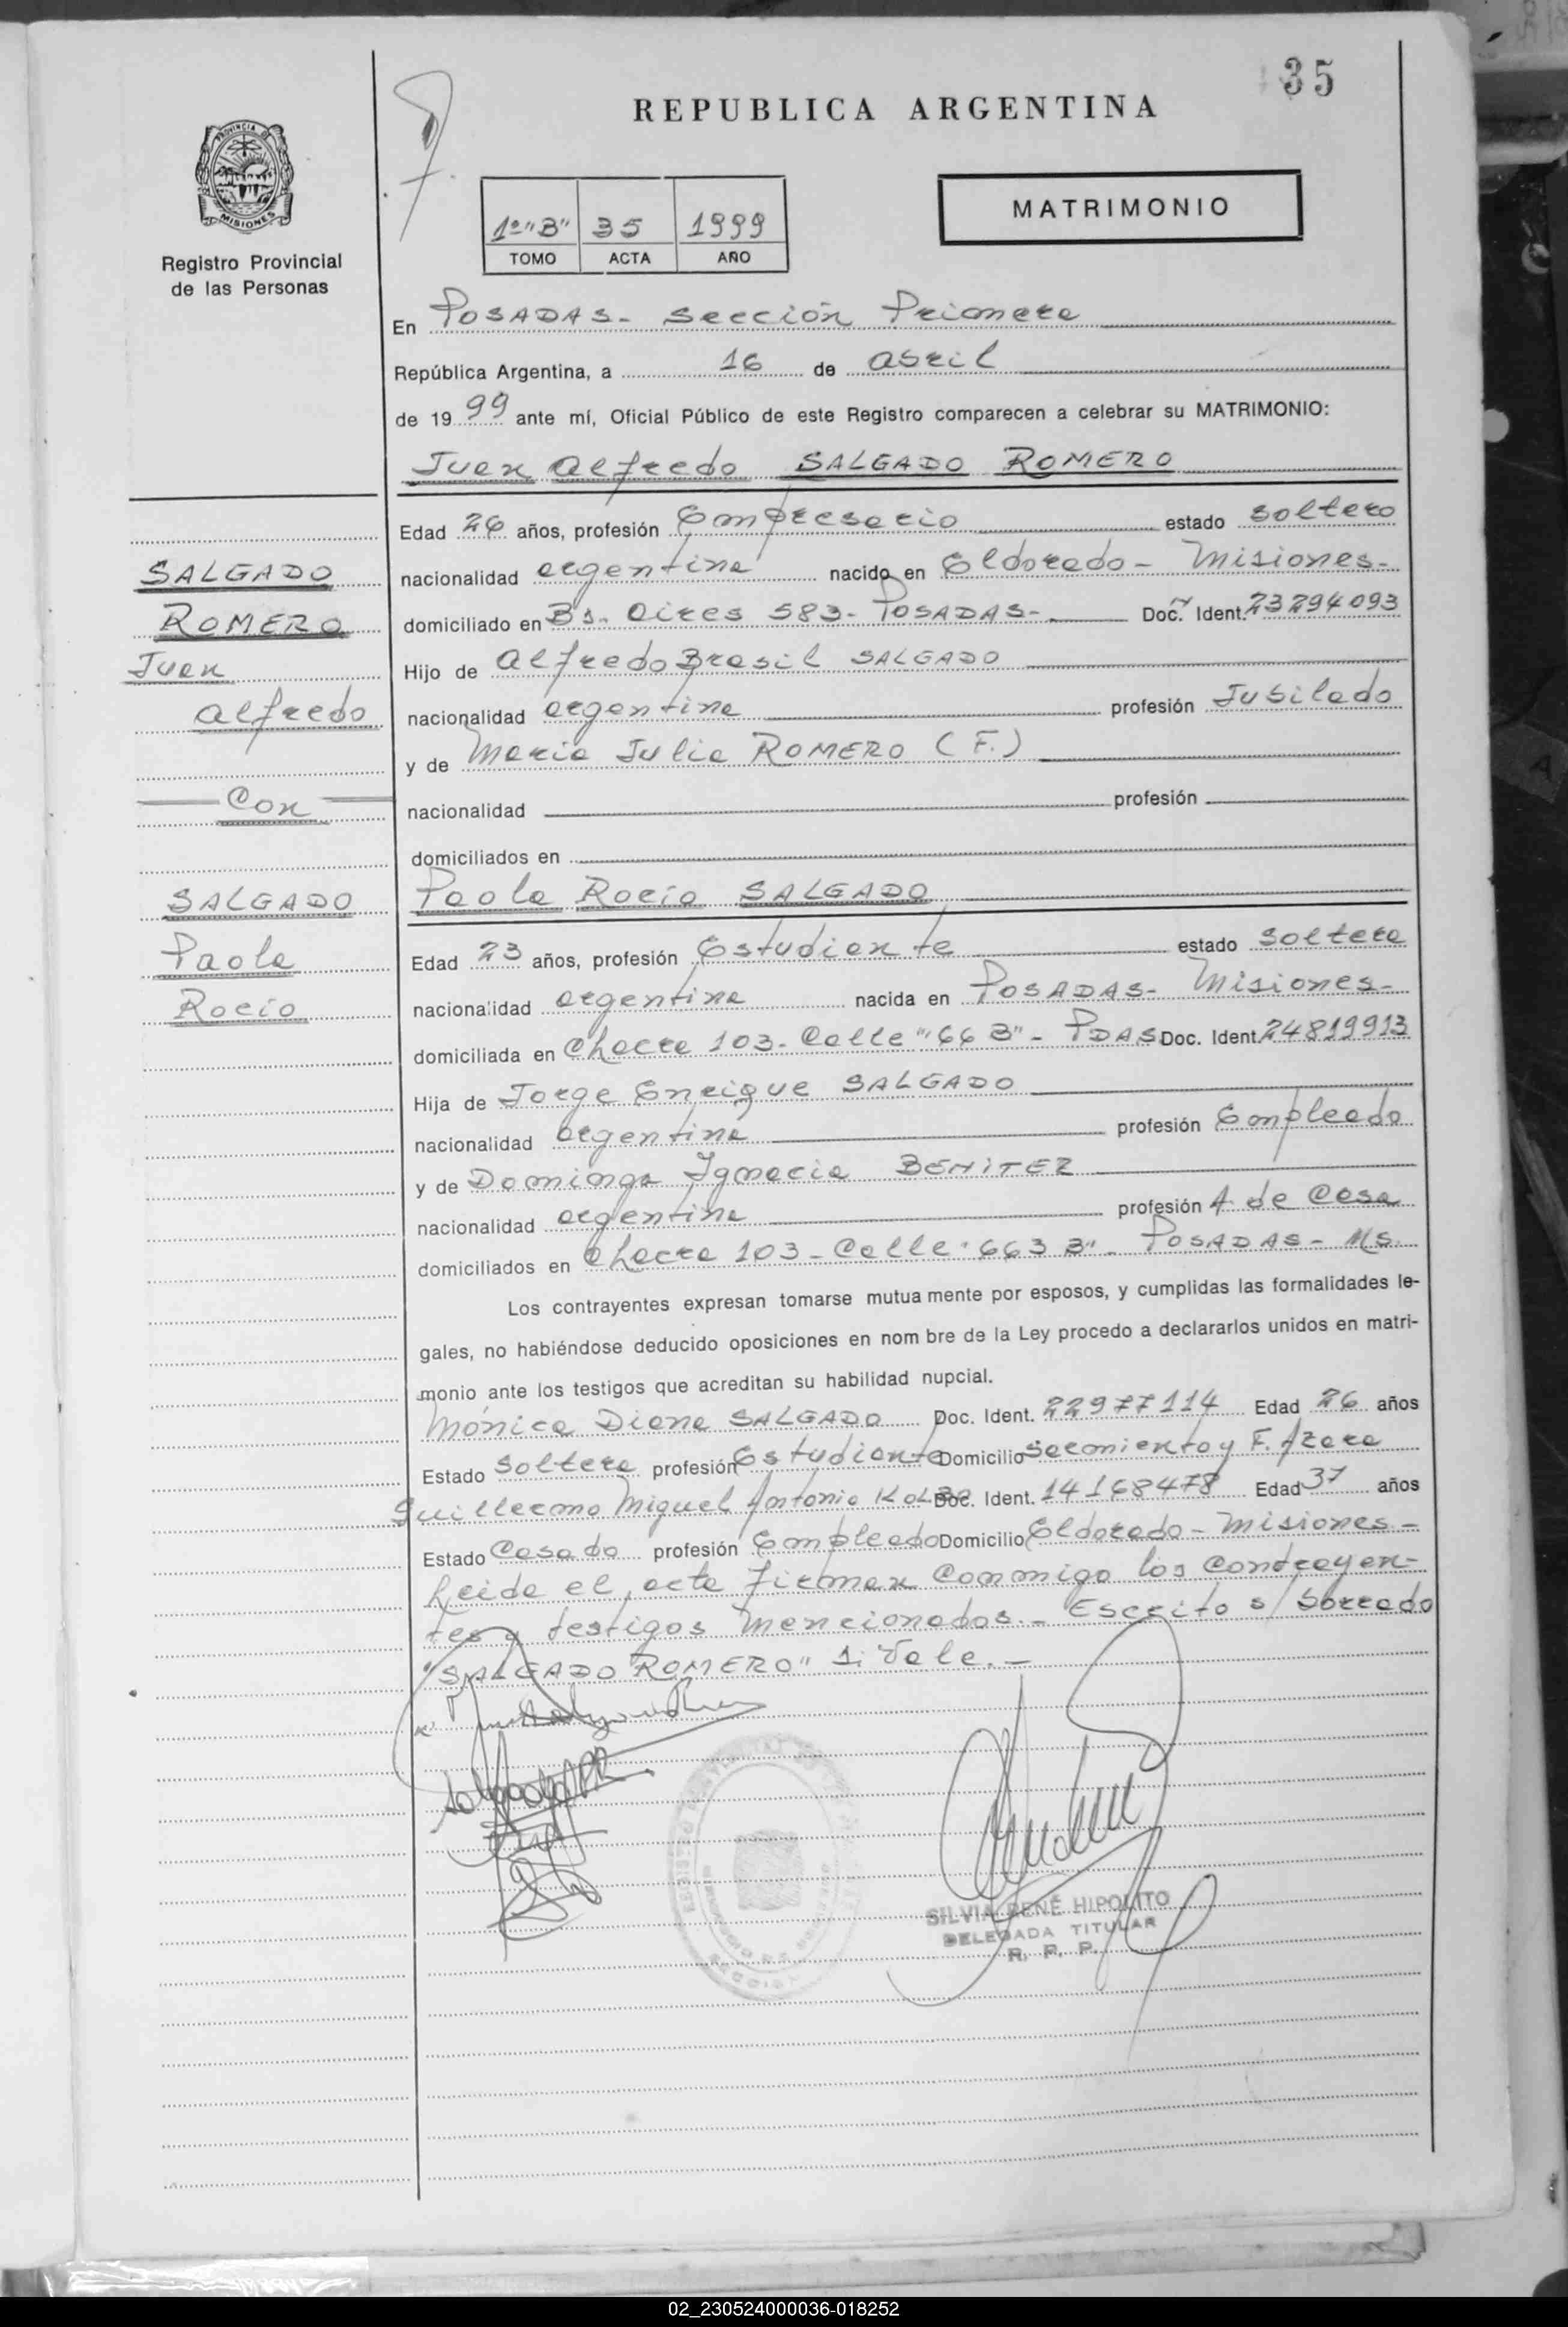 35
REPUBLICA ARGENTINA
PROVINCIA DE
MISIONES
Registro Provincial
de las Personas
1º "B" 35 1999
TOMO ACTA AÑO
MATRIMONIO
En POSADAS - Sección Primera
República Argentina, a 16 de abril
de 1999 ante mí, Oficial Público de este Registro comparecen a celebrar su MATRIMONIO:
Juan Alfredo SALGADO ROMERO
Edad 26 años, profesión Empresario estado soltero
SALGADO
nacionalidad argentina nacido en Eldorado - Misiones-
ROMERO
domiciliado en Bs. Aires 583- POSADAS- Doc. Ident. 23294093
Juan
Hijo de Alfredo Brasil SALGADO
Alfredo
nacionalidad argentina profesión Jubilado
y de María Julia ROMERO (F.)
Con
nacionalidad profesión
domiciliados en
SALGADO
Paola Rocío SALGADO
Paola
Edad 23 años, profesión Estudiante estado soltera
Rocío
nacionalidad argentina nacida en POSADAS- Misiones-
domiciliada en Chacra 103- Calle "66 B" - PDAS Doc. Ident. 24819913
Hija de Jorge Enrique SALGADO
nacionalidad argentina profesión Empleado
y de Dominga Ignacia BENITEZ
nacionalidad argentina profesión A de Casa
domiciliados en Chacra 103- Calle "663 B" - POSADAS - Ms.
Los contrayentes expresan tomarse mutua mente por esposos, y cumplidas las formalidades le-
gales, no habiéndose deducido oposiciones en nom bre de la Ley procedo a declararlos unidos en matri-
monio ante los testigos que acreditan su habilidad nupcial.
Mónica Diana SALGADO Doc. Ident. 22977114 Edad 26 años
Estado Soltera profesión Estudiante Domicilio Sarmiento y F. Azara
Guillermo Miguel Antonio Doc. Ident. 14168478 Edad 37 años
Estado Casado profesión Empleado Domicilio Eldorado - Misiones -
Leida el acta firman conmigo los contrayen-
tes y testigos mencionados.- Escrito s/ borrado
"SALGADO ROMERO" s. Vale.-
SILVIA RENÉ HIPOLITO
DELEGADA TITULAR
R. P. P.
02_230524000036-018252